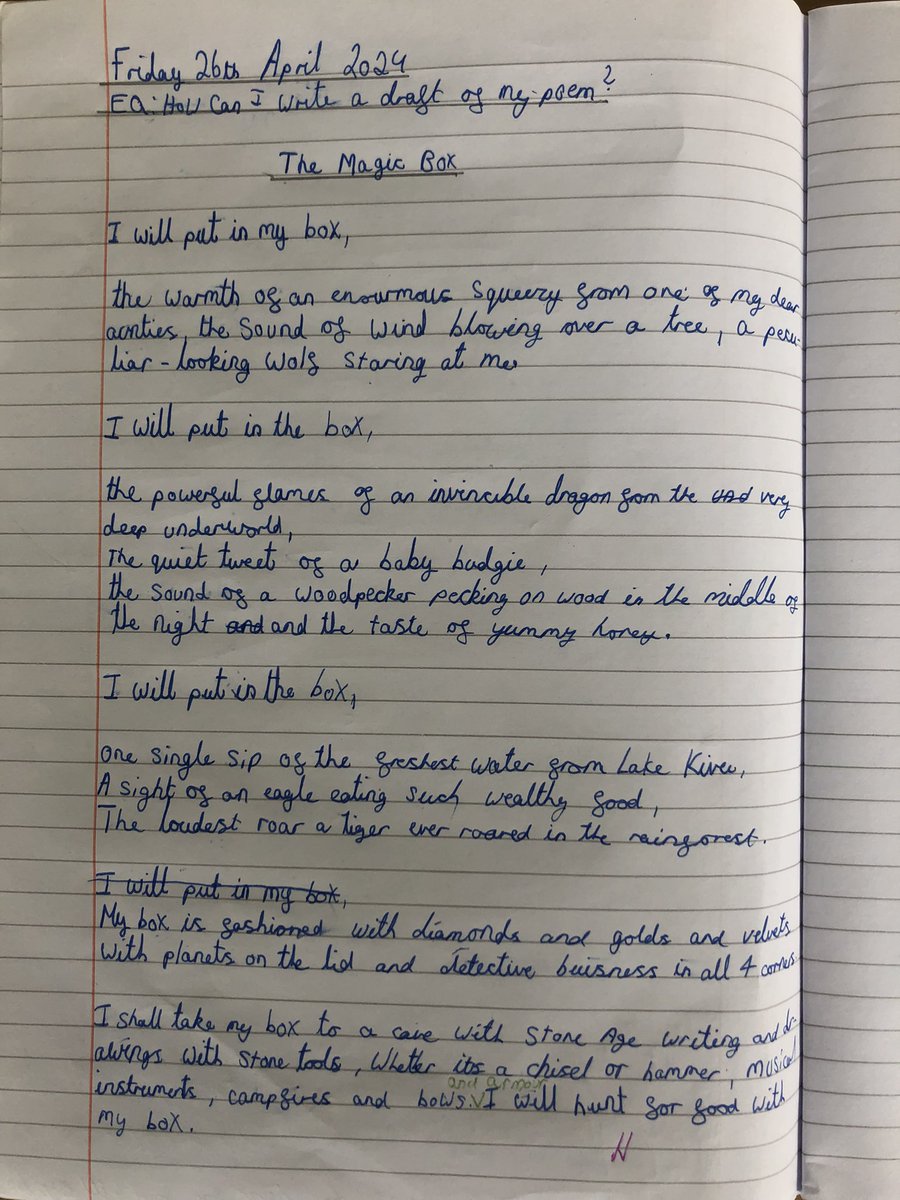 Friday 26th April 2024
EQ: How Can I write a draft of my poem?
The Magic Box
I will put in my box,
the warmth of an enourmous squeezy from one of my dear
aunties, the sound of wind blowing over a tree, a pecu-
liar-looking wolf staring at me.
I will put in the box,
the powerful flames of an invincible dragon from the und very
deep underworld,
The quiet tweet of a baby budgie,
the sound of a woodpecker pecking on wood in the middle of
the night and and the taste of yummy honey.
I will put in the box,
One single sip of the freshest water from Lake Kivu,
A sight of an eagle eating such wealthy food,
The loudest roar a tiger ever roared in the rainforest.
I will put in my box,
My box is fashioned with diamonds and golds and velvets
with planets on the lid and detective buisness in all 4 corners.
I shall take my box to a cave with Stone Age writing and dr-
awings with stone tools, Whether its a chisel or hammer, musical
and armor
instruments, campfires and bows. I will hunt for food with
my box.
H